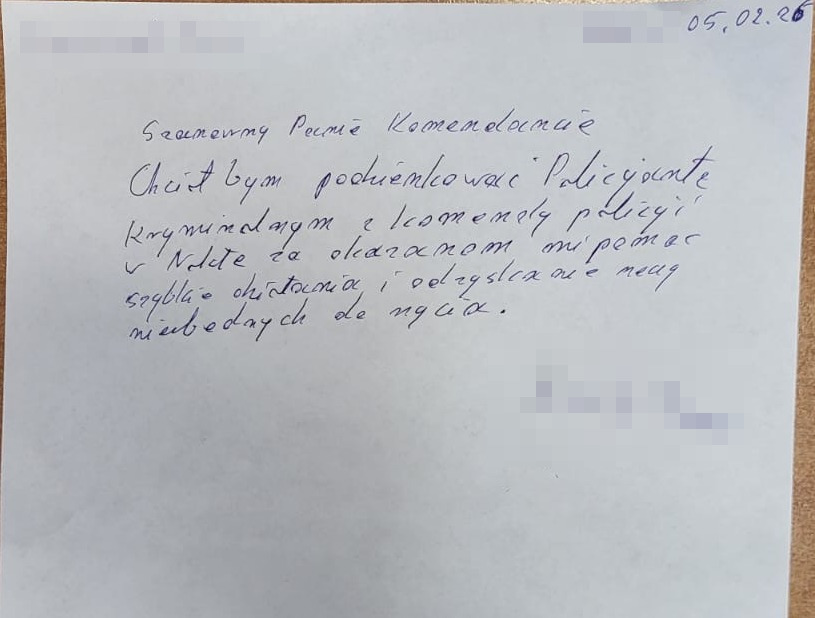 05.02.26
Szanowny Panie Komendancie
Chciał bym podzienkować Policjantą
kryminalnym z komendy policji
w Nakle za okazanom mi pomoc
szybkie działania i odzyskanie
niezbednych do życia.